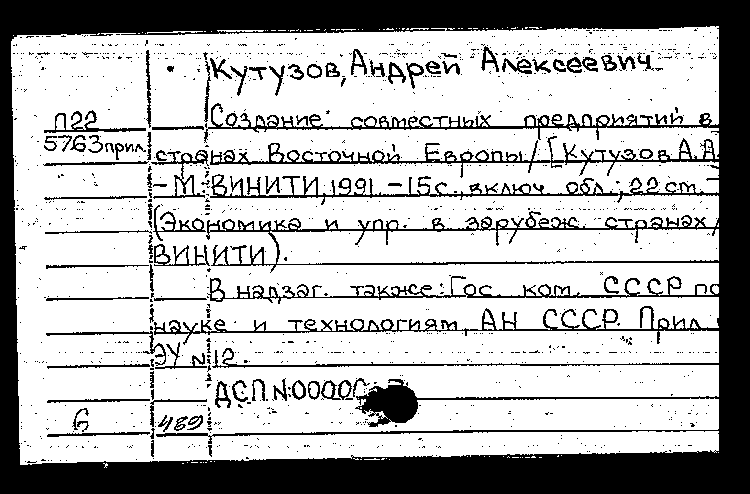 Кутузов, Андрей Алексеевич
П22
5763 прил
Создание совместных предприятий в
странах Восточной Европы / [Кутузов А.А
– М.: ВИНИТИ, 1991. – 15 с., включ. обл.; 22 см. –
(Экономика и упр. в зарубеж. странах /
ВИНИТИ).
В надзаг. также: Гос. ком. СССР по
науке и технологиям, АН СССР. Прил
ЭУ N 12.
ДСП N: 0000
6 489